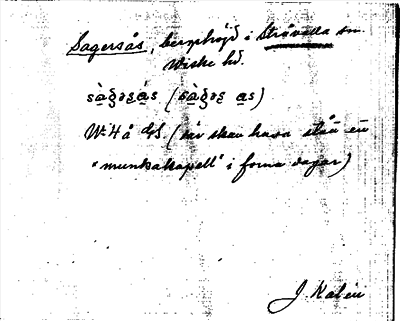 Sagersås, bergshöjd i Stråvalla sn.
Viske hd.
sàgəʂás (sàgəʂ as)
W. 4 å GS. (där skall hava stått en
"munkakapell" i forna dagar)
J. Kalén